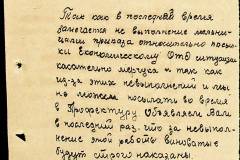 Так как в последний время
замечается не выполнение мельни-
цами приказа относительно посыл-
ки Економическому Отд ситуации
касательно мерчука и так как
из-за этих невыполнений и мы
не можем посылать во время
в Префектуру Обявляем Вам
в последний раз, що за невыпол-
нение этой работы виноватые
будут строго наказаны.